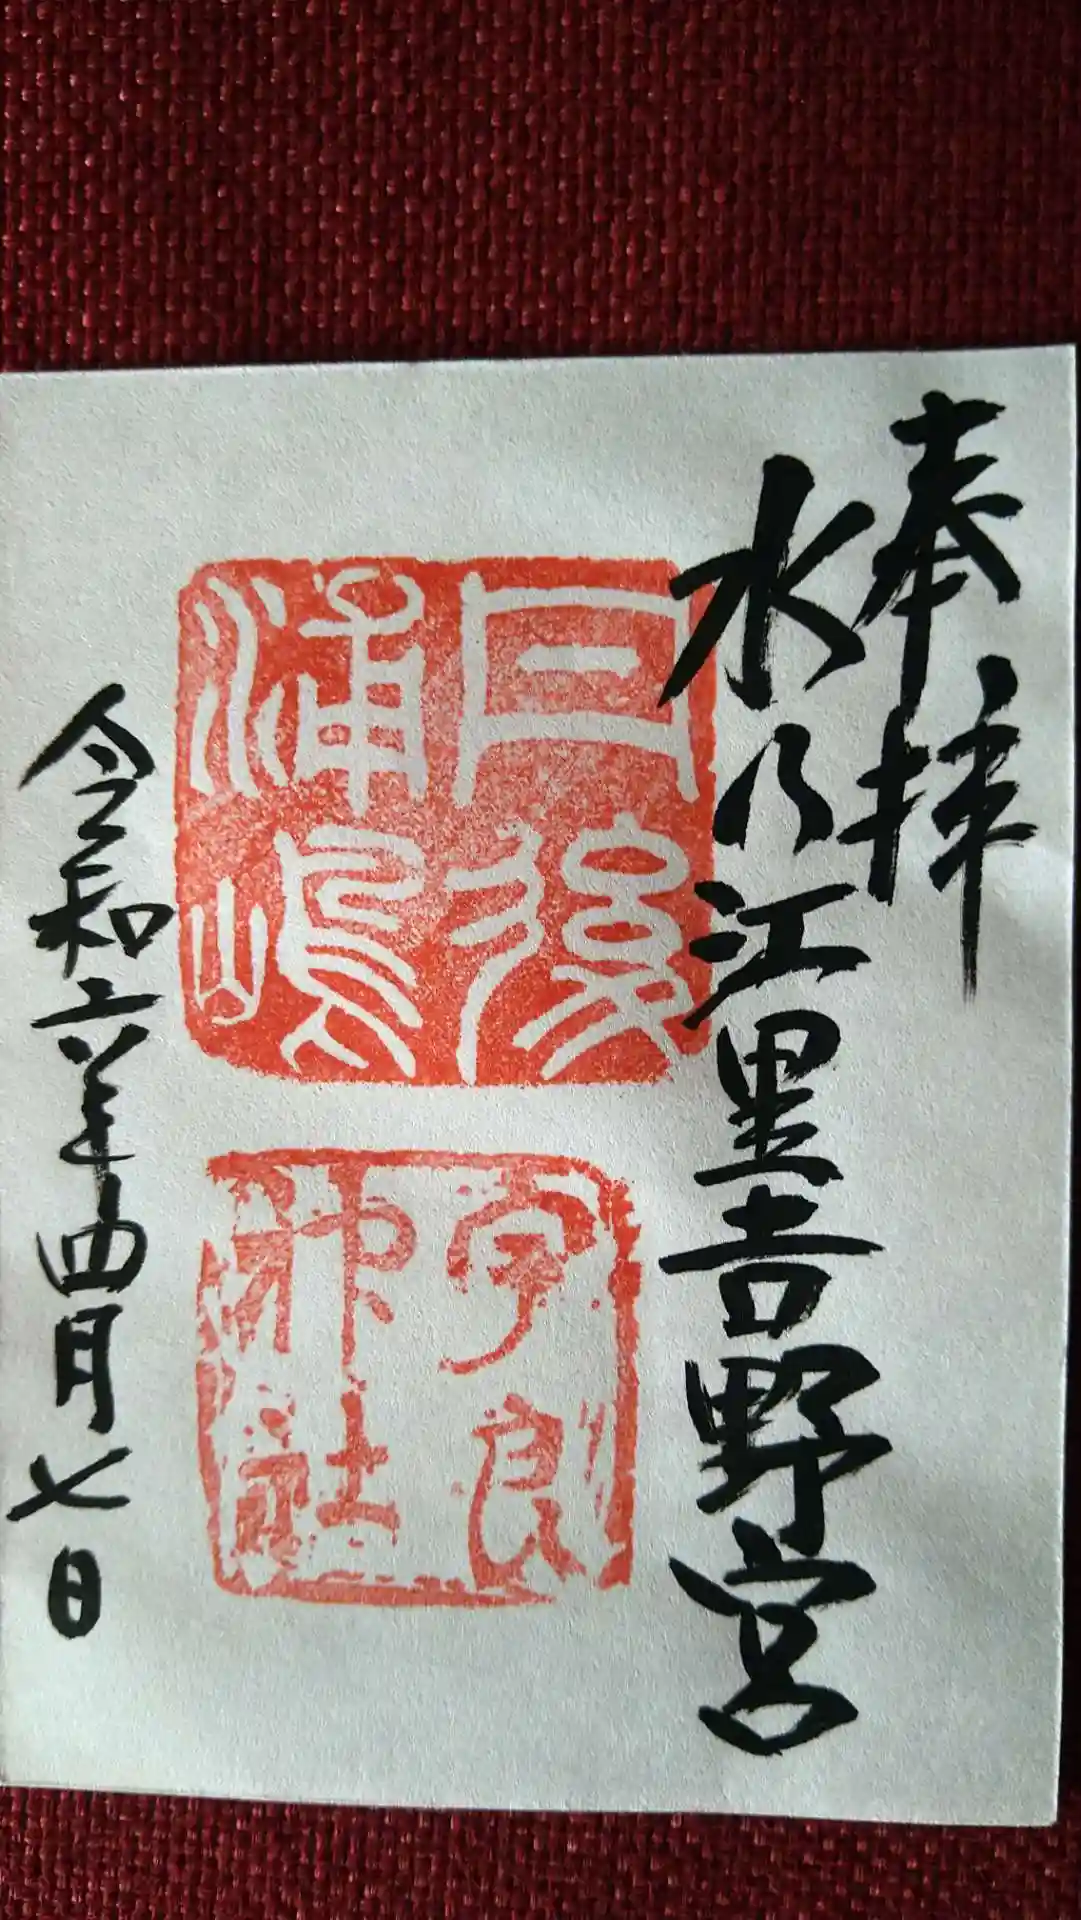 奉拝
水乃江里吉野宮
丹後
浦嶋
宇良
神社
令和六年四月七日